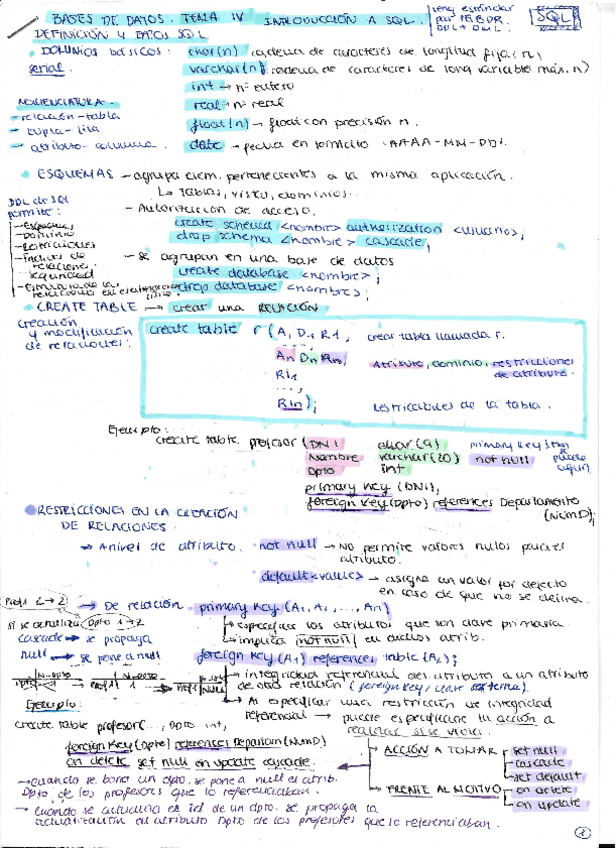 BASES DE DATOS. TEMA IV INTRODUCCIÓN A SQL.
leng estándar
por SGBDR.
DDL + DML.
SQL
DEFINICIÓN Y DATOS SQL
• DOMINIOS básicos: char(n) : cadena de caracteres de longitud fija (n)
serial. varchar(n) : cadena de caracteres de long variable máx. n)
int → nº entero
NOMENCLATURA.
real → nº real
- relación - tabla
float(n) → float con precisión n.
- tupla - fila
- atributo - columna
date → fecha en formato 'AAAA-MM-DD'.
• ESQUEMAS - agrupa elem. pertenecientes a la misma aplicación.
↳ tablas, vistas, dominios...
DDL de SQL
permite:
- Autorización de acceso.
- Esquemas
- Dominio
- Restricciones
- Índices de
relaciones
seguridad
create schema <nombre> authorization <usuario>;
drop schema <nombre> cascade;
- Se agrupan en una base de datos
create database <nombre>;
drop database <nombre>;
• CREATE TABLE → crear una RELACIÓN
creación
y modificación
de relaciones:
create table r (A, D, R1, crear tabla llamada r.
....,
An Dn Rn, Atributo, dominio, restricciones
de atributo.
Ri1
...,
Rin); restricciones de la tabla.
Ejemplo:
create table profesor (DNI char(9) primary key
Nombre varchar(20) not null
Dpto int
primary key (DNI),
foreign key (Dpto) references Departamento
(NumD);
• RESTRICCIONES EN LA CREACIÓN
DE RELACIONES.
→ A nivel de atributo. not null → No permite valores nulos para el
atributo.
default <value> → asigna un valor por defecto
en caso de que no se defina.
→ De relación. primary key (A1, A2, ..., An)
si se actualiza Dpto 1→2
especificar los atributos que son clave primaria.
cascade → se propaga
implica not null en dichos atrib.
null → se pone a null
foreign key (A1) references table (A2);
→ integridad referencial del atributo a un atributo
de otra relación (foreign key, clave externa).
Ejemplo:
→ Al especificar una restricción de integridad
referencial → puede especificarse la acción a
realizar si se viola.
create table profesor (..., Dpto int,
foreign key (Dpto) references Departam (NumD)
on delete set null on update cascade.
ACCIÓN A TOMAR
set null
cascade
set default
FRENTE AL MOTIVO
on delete
on update
- Cuando se borra un dpto. se pone a null el atrib.
Dpto de los profesores que lo referenciaban.
- Cuando se actualiza el id de un dpto. se propaga la
actualización al atributo Dpto de los profesores que lo referenciaban.
1